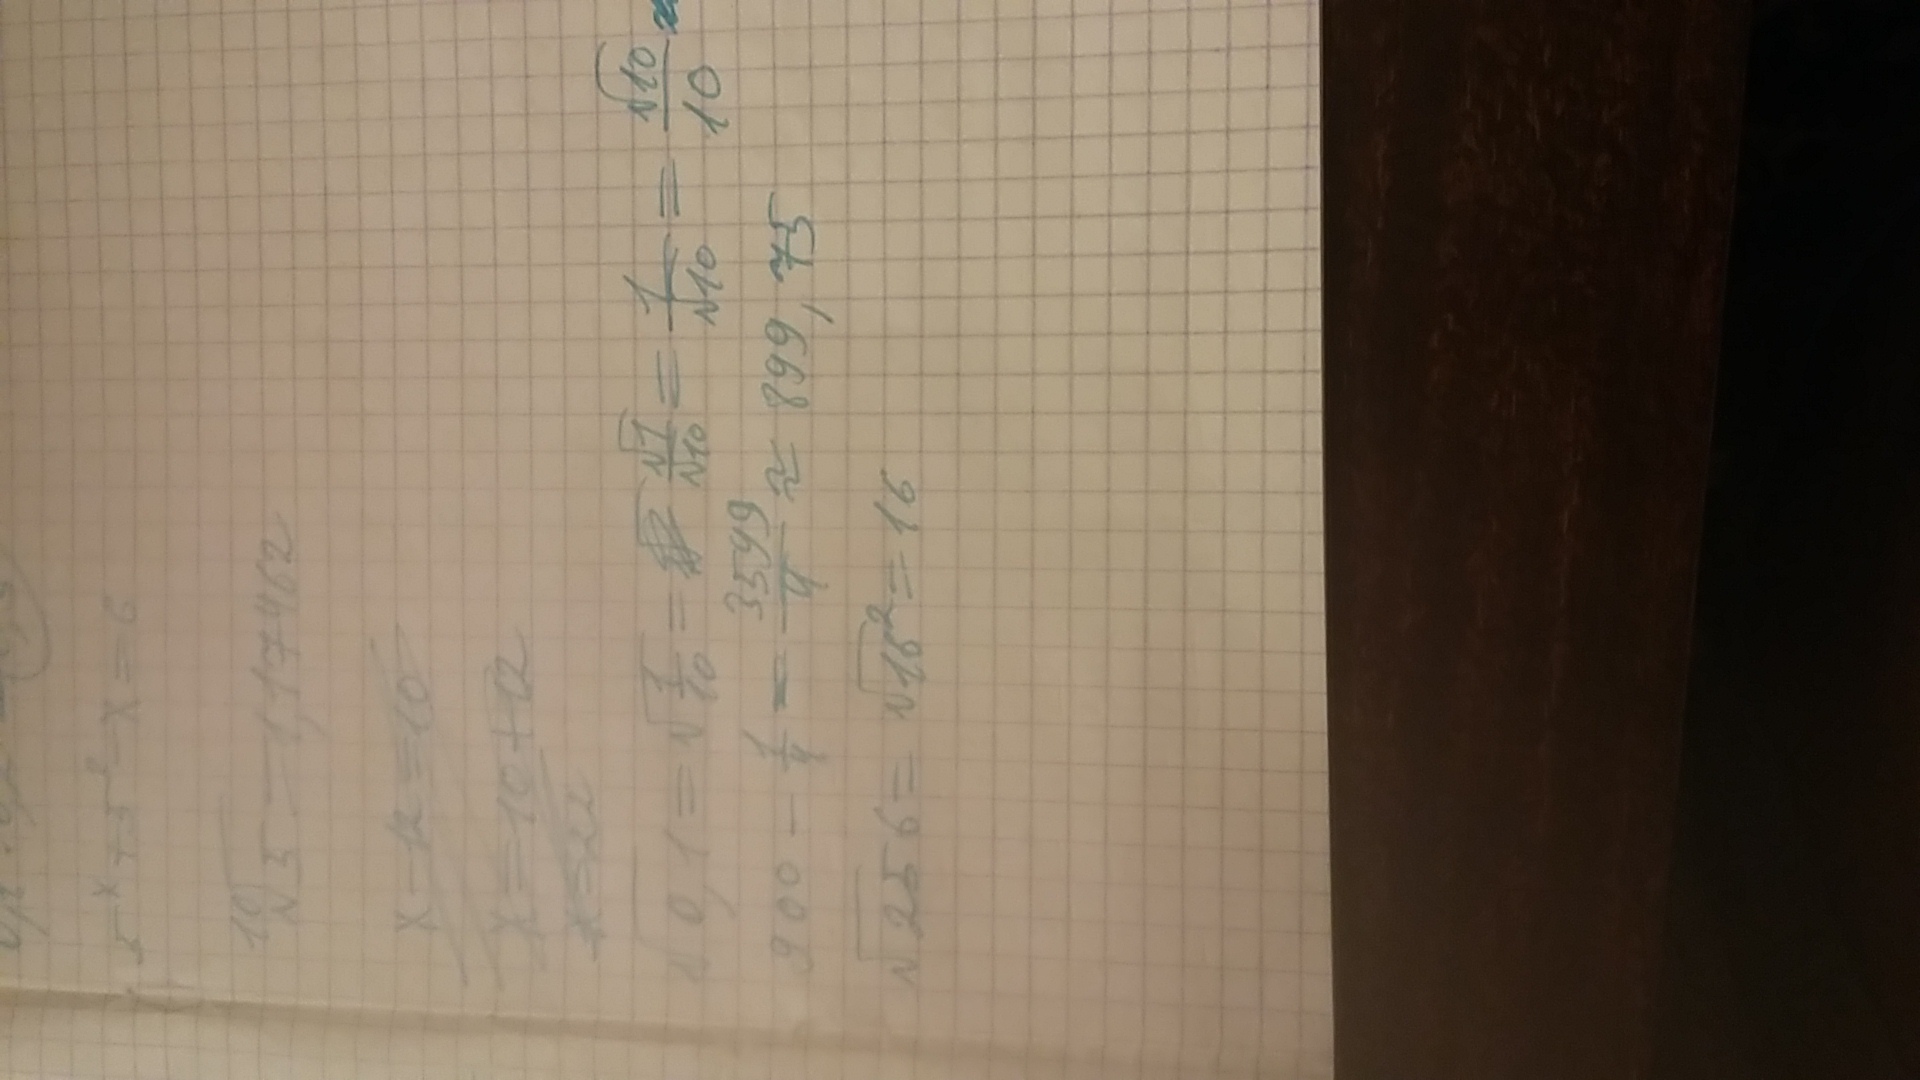 5^x + 5^2 - x = 6
¹⁰√5 - 1,17462
x - 12 = 10
x = 10 + 12
x = 22
√0,1 = √(1/10) = √1/√10 = 1/√10 = √10/10 ≈
900 - 1/4 = 3599/4 ≈ 899,75
√256 = √16² = 16